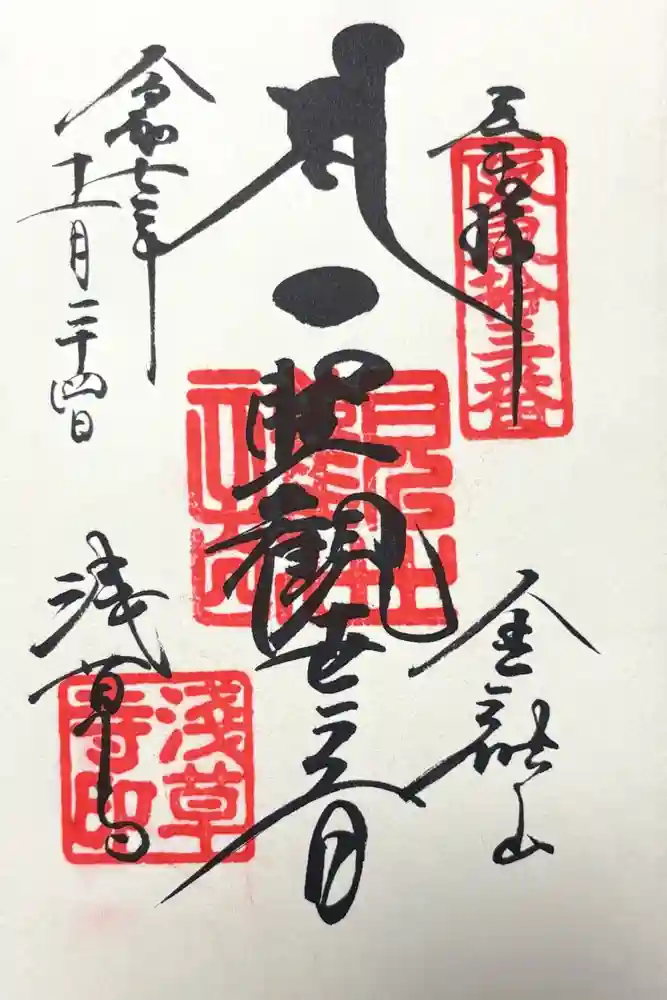 奉拝
坂東拾三番
聖観世音
金龍山
令和七年
十一月二十四日
浅草寺
浅草
寺印